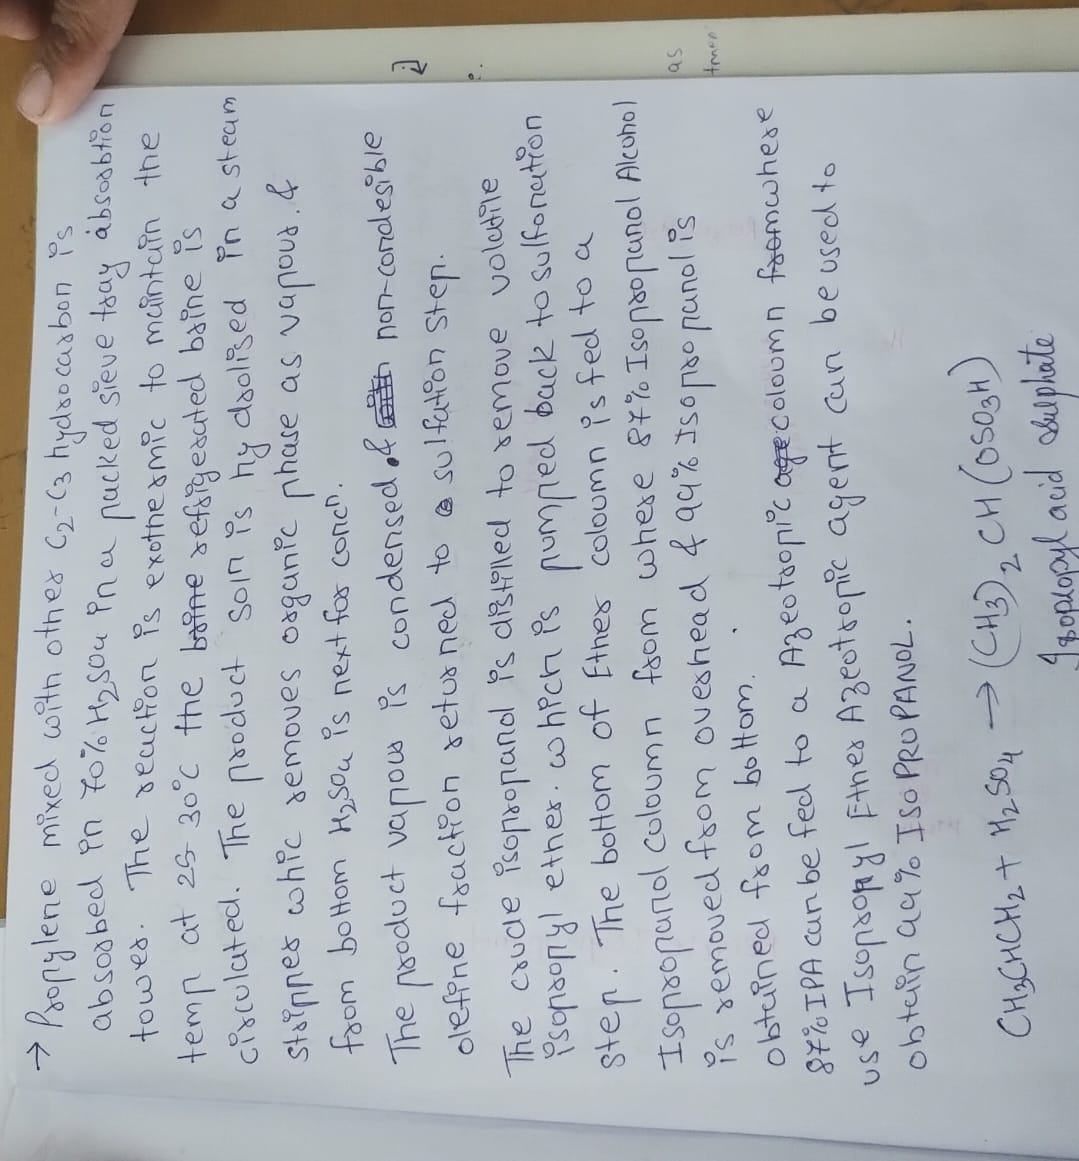 → Propylene mixed with other C2-C3 hydrocarbon is
absorbed in 70% H2SO4 in a packed sieve tray absorbtion
tower. The reaction is exothermic to maintain the
temp at 25 30°C the brine refrigerated brine is
circulated. The product soln is hydrolised in a steam
stripper whic removes organic phase as vapour. &
from bottom H2SO4 is next for concn.
The product vapour is condensed. & non-condesible
olefine fraction returned to sulfation step.
The crude isopropanol is distilled to remove volatile
isopropyl ether. which is pumped back to sulfonation
step. The bottom of Ether coloumn is fed to a
Isopropanol coloumn from where 87% Isopropanol Alcohol
is removed from overhead & 99% Isopropanol is
obtained from bottom.
87% IPA can be fed to a Azeotropic age coloumn from where
use Isopropyl Ether Azeotropic agent can be used to
obtain 99% ISOPROPANOL.
CH3CHCH2 + H2SO4 → (CH3)2 CH (OSO3H)
Isopropyl acid sulphate
as